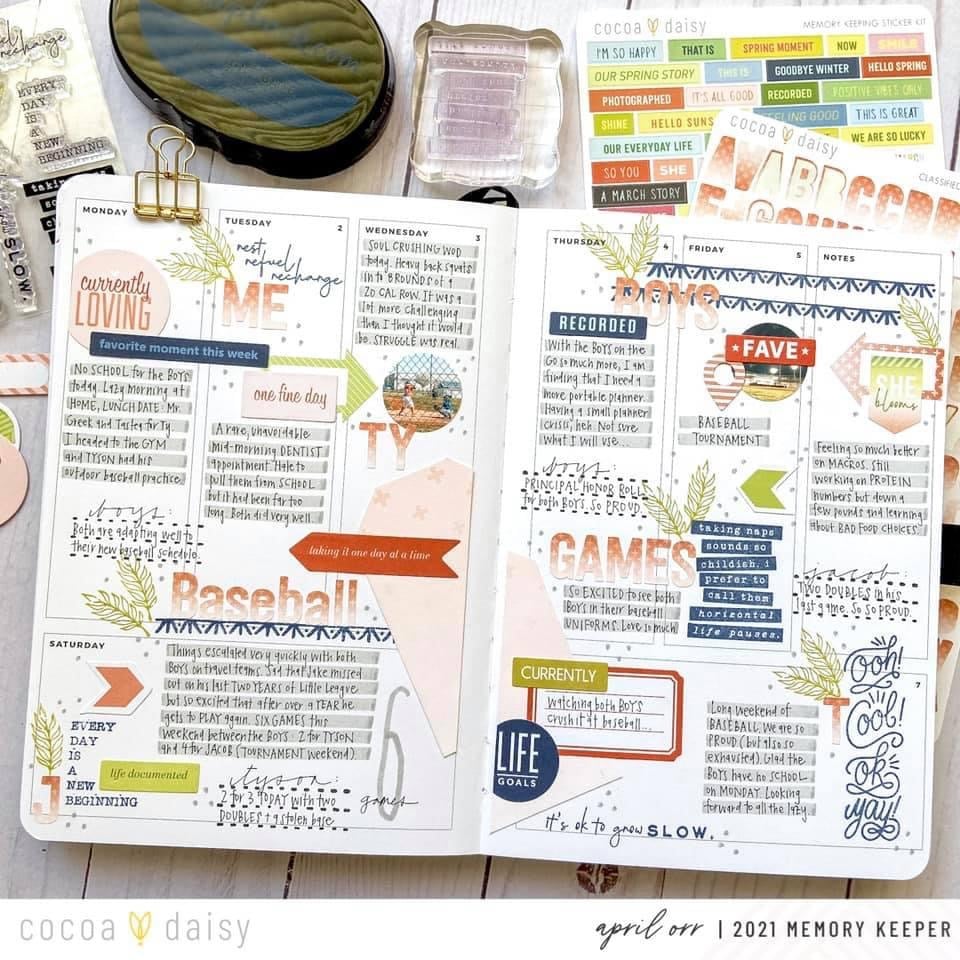 recharge
EVERY
DAY IS
A
NEW
BEGINNING
SLOW.
cocoa daisy
MEMORY KEEPING STICKER KIT
I'M SO HAPPY
THAT IS
SPRING MOMENT
NOW
SMILE
OUR SPRING STORY
THIS IS
GOODBYE WINTER
HELLO SPRING
PHOTOGRAPHED
IT'S ALL GOOD
RECORDED
POSITIVE VIBES ONLY
SHINE
HELLO SUNS
FEELING GOOD
THIS IS GREAT
OUR EVERYDAY LIFE
WE ARE SO LUCKY
SO YOU
SHE
A MARCH STORY
cocoa daisy
CLASSIFIED
MONDAY
currently
LOVING
favorite moment this week
NO SCHOOL for the BOYS
today. Lazy morning at
HOME, LUNCH DATE: Mr.
Greek and Tasters for Ty.
I headed to the GYM
and TYSON had his
outdoor baseball practice.
boys:
Both are adapting well to
their new baseball schedule.
TUESDAY
2
rest
refuel
recharge
ME
one fine day
A rare, unavoidable
mid-morning DENTIST
appointment. Hate to
pull them from SCHOOL
but it had been far too
long. Both did very well.
WEDNESDAY
3
SOUL CRUSHING WOD
today. Heavy back squats
in to 8 ROUNDS of a
20 CAL ROW. It was a
lot more challenging
than I thought it would
be. STRUGGLE was real.
TY
taking it one day at a time
Baseball
SATURDAY
EVERY
DAY
IS
A
NEW
BEGINNING
J
life documented
Things escalated very quickly with both
BOYS on travel teams. Sad that Jake missed
out on his last TWO YEARS of Little League
but so excited that after over a YEAR he
gets to PLAY again. SIX GAMES this
weekend between the BOYS: 2 for TYSON
and 4 for JACOB (TOURNAMENT weekend).
tyson:
2 for 3 TODAY with two
DOUBLES + a stolen base
6
games
THURSDAY
4
BOYS
RECORDED
With the BOYS on the
Go so much more, I am
finding that I need a
more portable planner.
Having a small planner
crisis, heh. Not sure
what I will use...
boys:
PRINCIPAL HONOR ROLL
for both BOYS. SO PROUD.
GAMES
So EXCITED to see both
BOYS in their baseball
UNIFORMS. Love so much
FRIDAY
5
FAVE
BASEBALL
TOURNAMENT
taking naps
sounds so
childish. i
prefer to
call them
horizontal
life pauses.
NOTES
SHE
blooms
Feeling so much better
on MACROS. Still
working on PROTEIN
numbers but down a
few pounds and learning
about BAD FOOD CHOICES.
jacob:
TWO DOUBLES in his
last game. SO SO PROUD.
CURRENTLY
watching both BOYS
crush it at baseball...
LIFE
GOALS
it's ok to grow SLOW.
7
T
Long weekend of
BASEBALL. We are so
PROUD (but also so
exhausted). Glad the
BOYS have no SCHOOL
on MONDAY. Looking
forward to all the lazy.
ooh!
Cool!
ok
yay!
cocoa daisy
april orr | 2021 MEMORY KEEPER